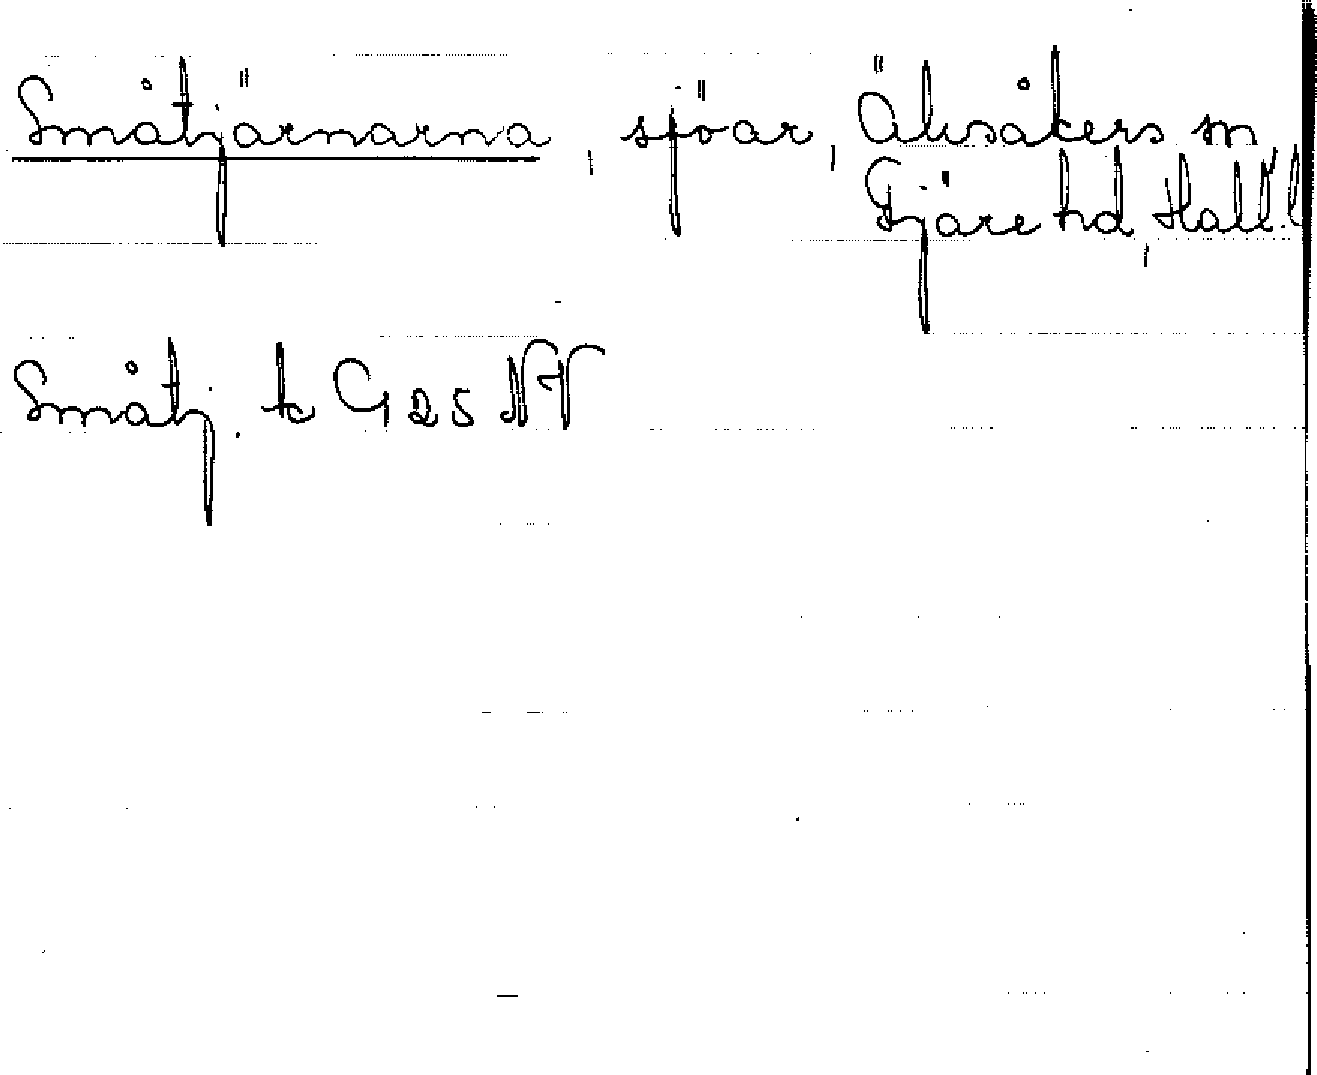 Småtjärnarna, sjöar, Älvsåkers sn
Fjäre hd, Hall.
Småtj. tc G25 NV